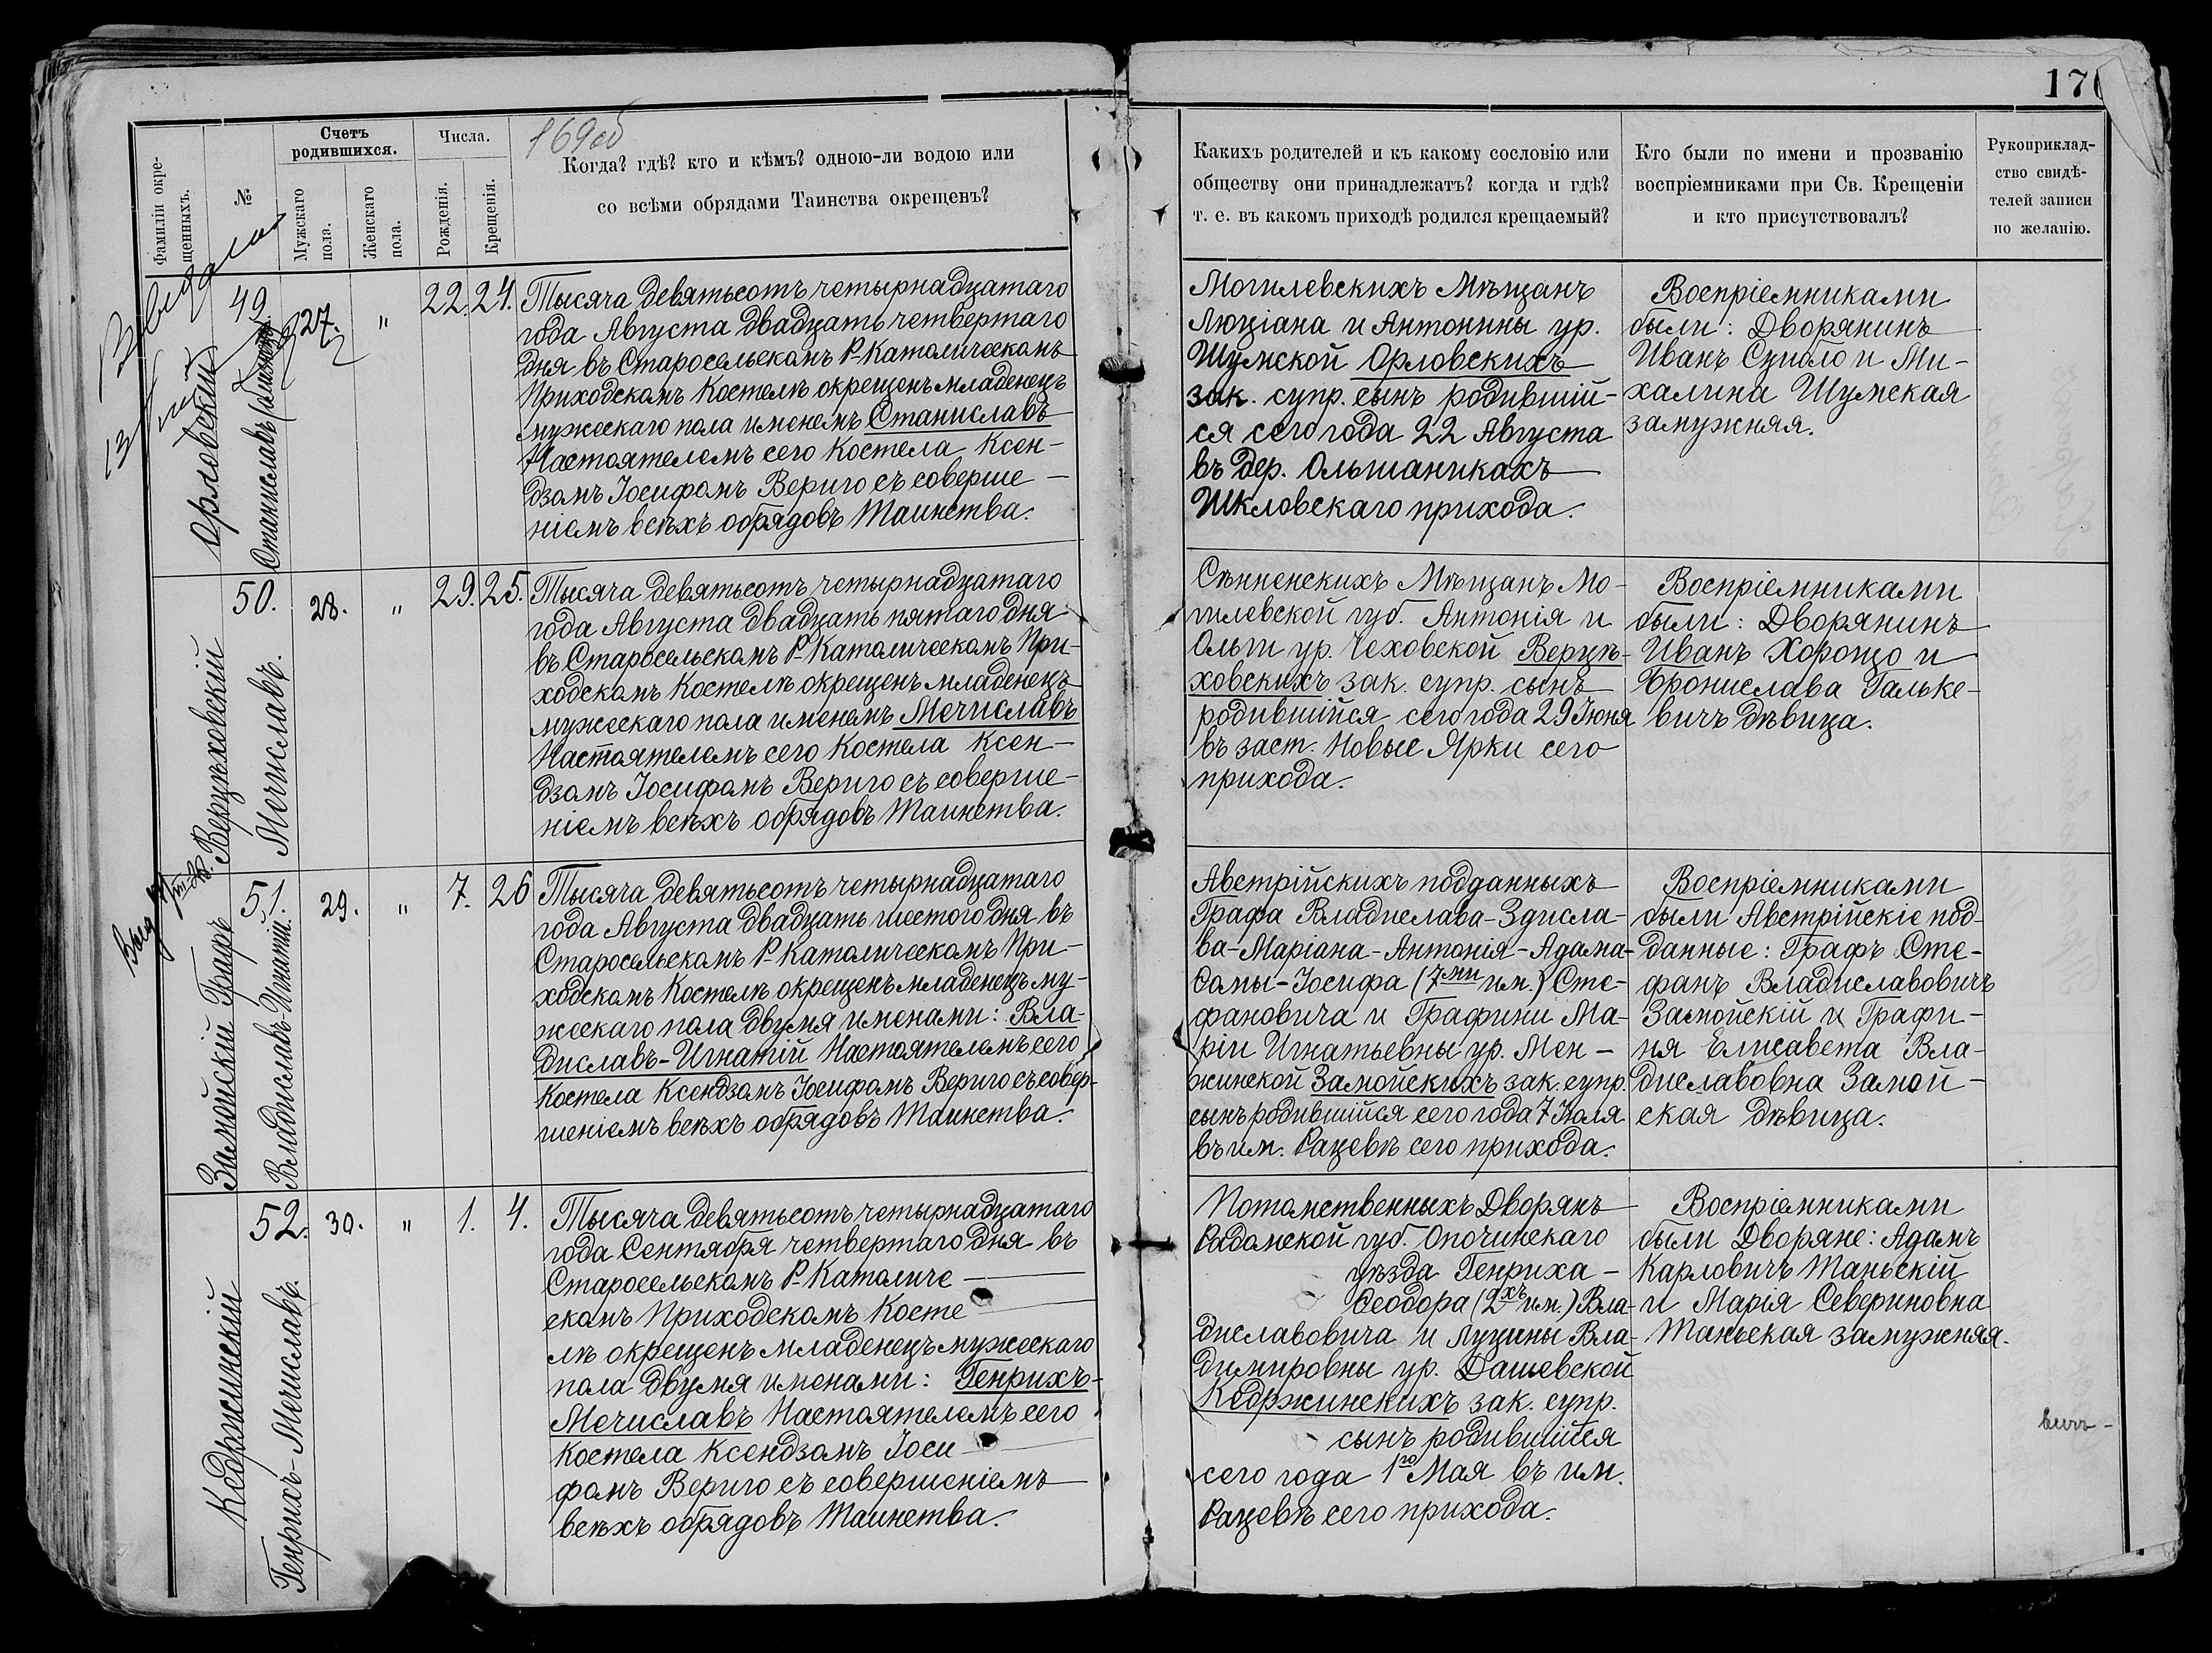 170
169об
Фамиліи окре-
щенныхъ.
№
Счетъ
родившихся.
Мужскаго
пола.
Женскаго
пола.
Числа.
Рожденія.
Крещенія.
Когда? гдѣ? кто и кѣмъ? одною-ли водою или
со всѣми обрядами Таинства окрещенъ?
Какихъ родителей и къ какому сословію или
обществу они принадлежатъ? когда и гдѣ?
т. е. въ какомъ приходѣ родился крещаемый?
Кто были по имени и прозванію
воспріемниками при Св. Крещеніи
и кто присутствовалъ?
Рукоприклад-
ство свидѣ-
телей записи
по желанію.
Орловскій
Станиславъ
49
27.
"
22.
24.
Тысяча девятьсотъ четырнадцатаго
года Августа двадцать четвертаго
дня въ Старосельскомъ Р-Католическомъ
Приходскомъ Костелѣ окрещенъ младенецъ
мужескаго пола именемъ Станиславъ
Настоятелемъ сего Костела Ксен-
дзомъ Іосифомъ Вериго съ соверше-
ніемъ всѣхъ обрядовъ Таинства.
Могилевскихъ Мѣщанъ
Люціана и Антонины ур.
Шумской Орловскихъ
зак. супр. сынъ родившій-
ся сего года 22 Августа
въ дер. Ольшаникахъ
Шкловскаго прихода.
Воспріемниками
были: Дворянинъ
Иванъ Сцибло и Ми-
халина Шумская
замужняя.
Верцѣховскій
Мечиславъ.
50.
28.
"
29.
25.
Тысяча девятьсотъ четырнадцатаго
года Августа двадцать пятаго дня
въ Старосельскомъ Р-Католическомъ При-
ходскомъ Костелѣ окрещенъ младенецъ
мужескаго пола именемъ Мечиславъ
Настоятелемъ сего Костела Ксен-
дзомъ Іосифомъ Вериго съ соверше-
ніемъ всѣхъ обрядовъ Таинства.
Сѣнненскихъ Мѣщанъ Мо-
гилевской губ. Антонія и
Ольги ур. Чеховской Верцѣ-
ховскихъ зак. супр. сынъ
родившійся сего года 29 Іюня
въ заст. Новые Ярки сего
прихода.
Воспріемниками
были: Дворянинъ
Иванъ Хорошо и
Бронислава Гальке-
вичъ дѣвица.
Замойскій Графъ
Владиславъ-Игнатій.
51.
29.
"
7.
26
Тысяча девятьсотъ четырнадцатаго
года Августа двадцать шестого дня въ
Старосельскомъ Р-Католическомъ При-
ходскомъ Костелѣ окрещенъ младенецъ му-
жескаго пола двумя именами: Вла-
диславъ-Игнатій Настоятелемъ сего
Костела Ксендзомъ Іосифомъ Вериго съ совер-
шеніемъ всѣхъ обрядовъ Таинства.
Австрійскихъ подданныхъ
Графа Владислава-Здисла-
ва-Маріана-Антонія-Адама-
Ѳомы-Іосифа (7ми им.) Сте-
фановича и Графини Ма-
ріи Игнатьевны ур. Мен-
жинской Замойскихъ зак. супр.
сынъ родившійся сего года 7 Іюля
въ им. Рацевѣ сего прихода.
Воспріемниками
были Австрійскіе под-
данные: Графъ Сте-
фанъ Владиславовичъ
Замойскій и Графи-
ня Елисавета Вла-
диславовна Замой-
ская дѣвица.
Кедржинскій
Генрихъ-Мечиславъ.
52.
30.
"
1.
4.
Тысяча девятьсотъ четырнадцатаго
года Сентября четвертаго дня въ
Старосельскомъ Р-Католиче-
скомъ Приходскомъ Косте
лѣ окрещенъ младенецъ мужескаго
пола двумя именами: Генрихъ-
Мечиславъ Настоятелемъ сего
Костела Ксендзомъ Іоси
фомъ Вериго съ совершеніемъ
всѣхъ обрядовъ Таинства.
Потомственныхъ Дворянъ
Радомской губ. Опочинскаго
уѣзда Генриха-
Ѳеодора (2хъ им.) Вла-
диславовича и Луцины Вла-
димировны ур. Дашевской
Кедржинскихъ зак. супр.
сынъ родившійся
сего года 1го Мая въ им.
Рацевѣ сего прихода.
Воспріемниками
были Дворяне: Адамъ
Карловичъ Маньскій
и Марія Севериновна
Маньская замужняя.
вичъ-